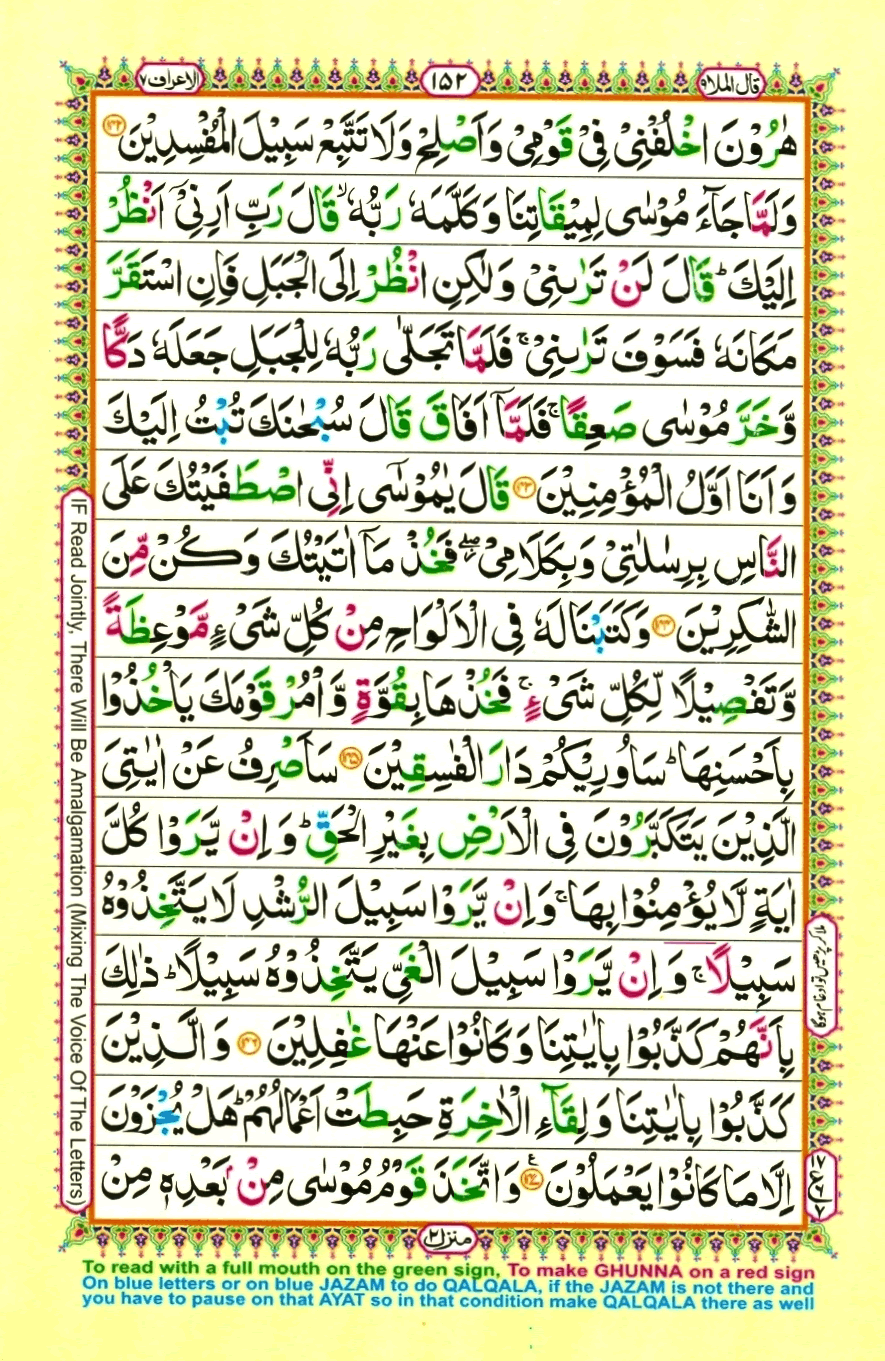 قال الملا٩
١٥٢
الاعراف٧
هٰرُوْنَ اخْلُفْنِیْ فِیْ قَوْمِیْ وَاَصْلِحْ وَلَا تَتَّبِعْ سَبِیْلَ الْمُفْسِدِیْنَ ﴿۱۴۲﴾
وَلَمَّا جَآءَ مُوْسٰی لِمِیْقَاتِنَا وَكَلَّمَهٗ رَبُّهٗ ۙ قَالَ رَبِّ اَرِنِیْۤ اَنْظُرْ
اِلَیْكَ ؕ قَالَ لَنْ تَرٰىنِیْ وَلٰكِنِ انْظُرْ اِلَی الْجَبَلِ فَاِنِ اسْتَقَرَّ
مَكَانَهٗ فَسَوْفَ تَرٰىنِیْ ۚ فَلَمَّا تَجَلّٰی رَبُّهٗ لِلْجَبَلِ جَعَلَهٗ دَكًّا
وَّخَرَّ مُوْسٰی صَعِقًا ۚ فَلَمَّاۤ اَفَاقَ قَالَ سُبْحٰنَكَ تُبْتُ اِلَیْكَ
وَاَنَا اَوَّلُ الْمُؤْمِنِیْنَ ﴿۱۴۳﴾ قَالَ یٰمُوْسٰۤی اِنِّی اصْطَفَیْتُكَ عَلَی
النَّاسِ بِرِسٰلٰتِیْ وَبِكَلَامِیْ ۖ فَخُذْ مَاۤ اٰتَیْتُكَ وَكُنْ مِّنَ
الشّٰكِرِیْنَ ﴿۱۴۴﴾ وَكَتَبْنَا لَهٗ فِی الْاَلْوَاحِ مِنْ كُلِّ شَیْءٍ مَّوْعِظَةً
وَّتَفْصِیْلًا لِّكُلِّ شَیْءٍ ۚ فَخُذْهَا بِقُوَّةٍ وَّاْمُرْ قَوْمَكَ یَاْخُذُوْا
بِاَحْسَنِهَا ؕ سَاُورِیْكُمْ دَارَ الْفٰسِقِیْنَ ﴿۱۴۵﴾ سَاَصْرِفُ عَنْ اٰیٰتِیَ
الَّذِیْنَ یَتَكَبَّرُوْنَ فِی الْاَرْضِ بِغَیْرِ الْحَقِّ ؕ وَاِنْ یَّرَوْا كُلَّ
اٰیَةٍ لَّا یُؤْمِنُوْا بِهَا ۚ وَاِنْ یَّرَوْا سَبِیْلَ الرُّشْدِ لَا یَتَّخِذُوْهُ
سَبِیْلًا ۚ وَاِنْ یَّرَوْا سَبِیْلَ الْغَیِّ یَتَّخِذُوْهُ سَبِیْلًا ؕ ذٰلِكَ
بِاَنَّهُمْ كَذَّبُوْا بِاٰیٰتِنَا وَكَانُوْا عَنْهَا غٰفِلِیْنَ ﴿۱۴۶﴾ وَالَّذِیْنَ
كَذَّبُوْا بِاٰیٰتِنَا وَلِقَآءِ الْاٰخِرَةِ حَبِطَتْ اَعْمَالُهُمْ ؕ هَلْ یُجْزَوْنَ
اِلَّا مَا كَانُوْا یَعْمَلُوْنَ ﴿۱۴۷﴾ ع وَاتَّخَذَ قَوْمُ مُوْسٰی مِنْۢ بَعْدِهٖ مِنْ
منزل٢
IF Read Jointly, There Will Be Amalgamation (Mixing The Voice Of The Letters)
To read with a full mouth on the green sign, To make GHUNNA on a red sign
On blue letters or on blue JAZAM to do QALQALA, if the JAZAM is not there and
you have to pause on that AYAT so in that condition make QALQALA there as well